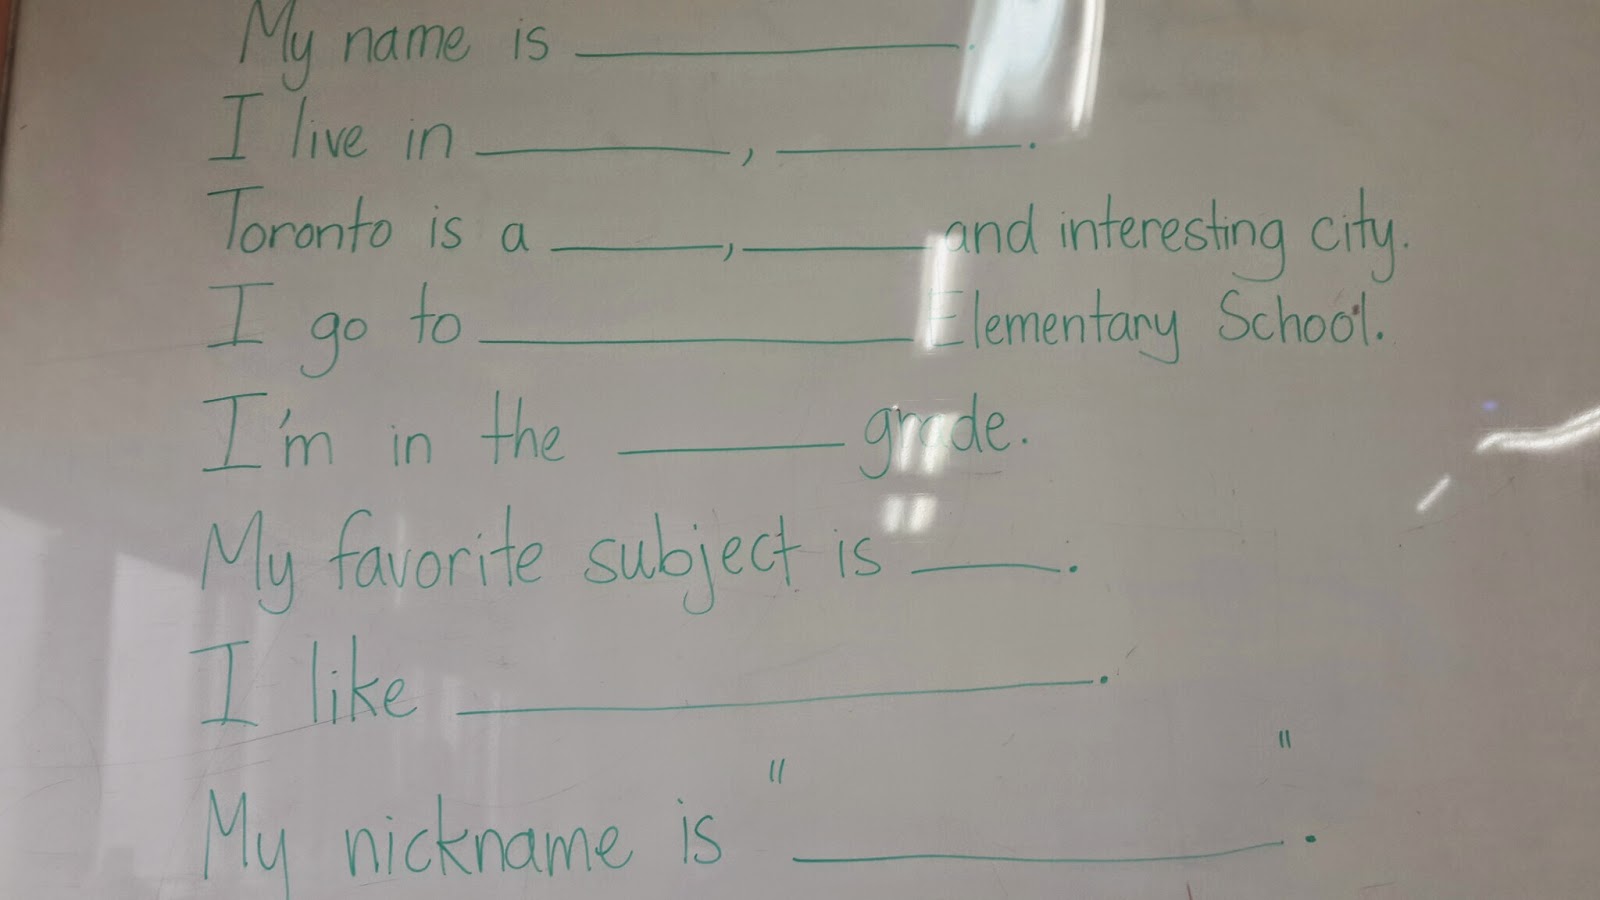 My name is __________.
I live in __________, __________.
Toronto is a ______, ______ and interesting city.
I go to __________ Elementary School.
I'm in the ________ grade.
My favorite subject is _____.
I like __________.
My nickname is "__________".